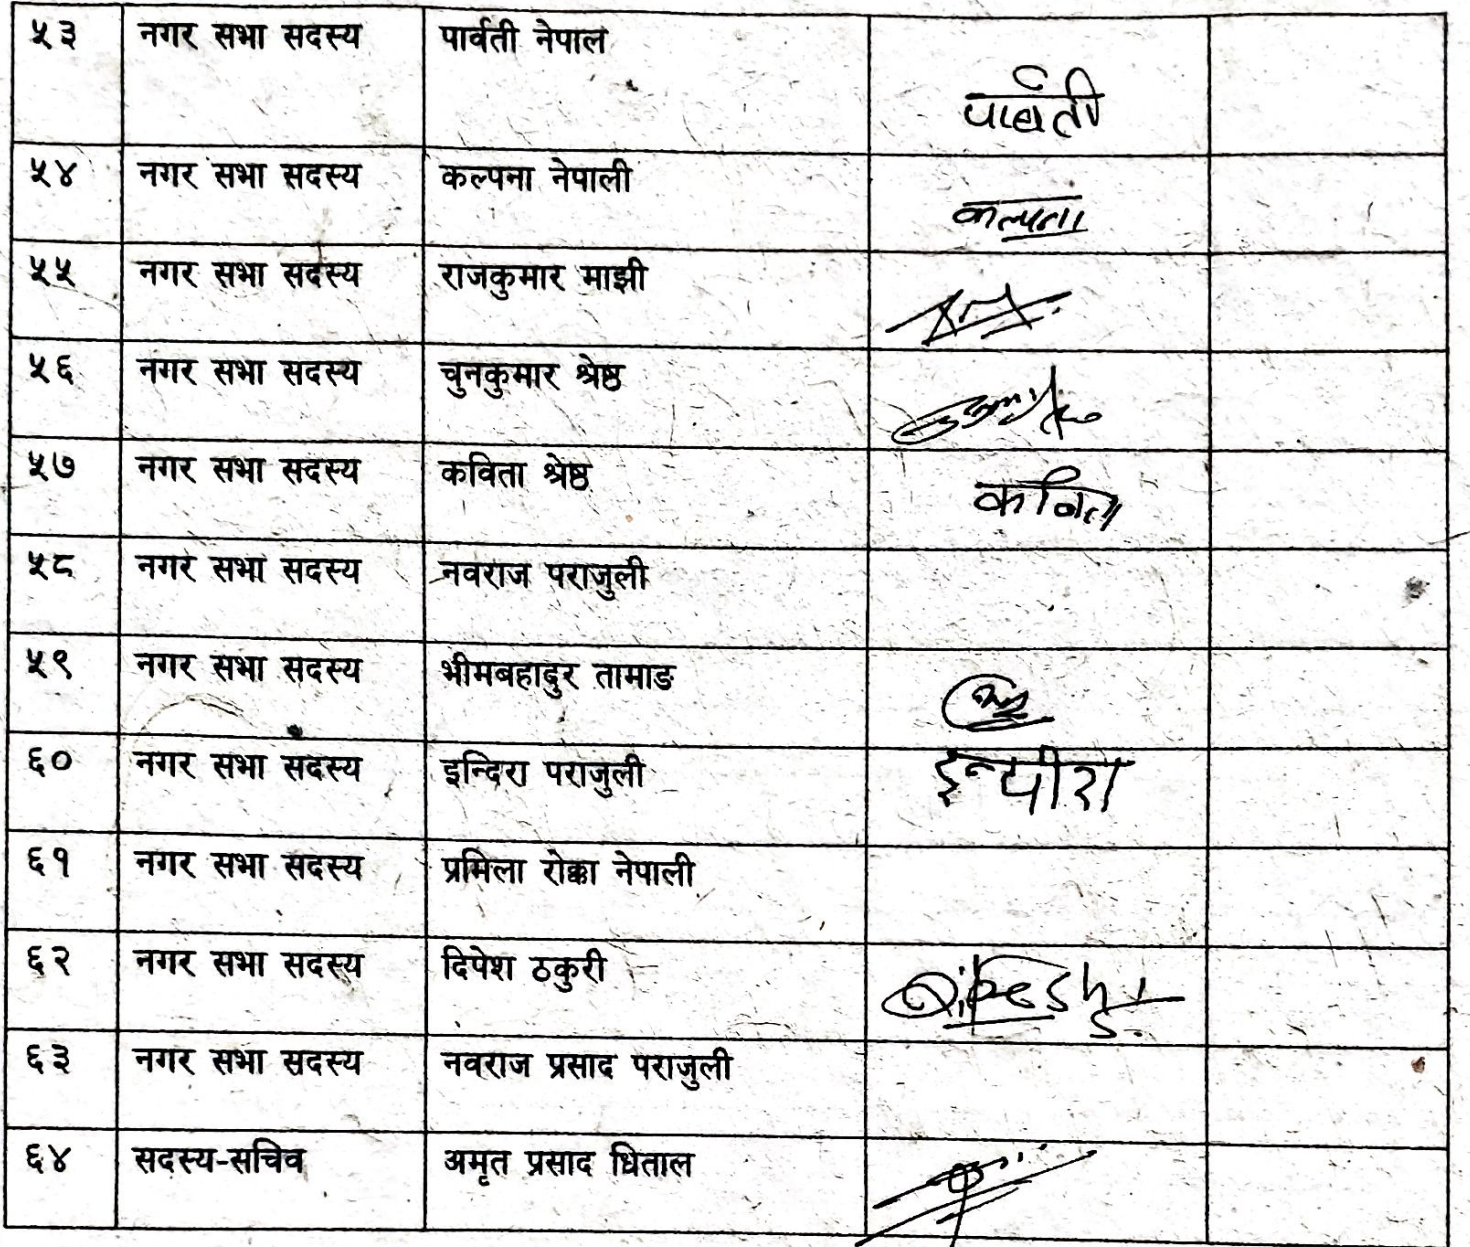 ५३ नगर सभा सदस्य पार्वती नेपाल पार्वती
५४ नगर सभा सदस्य कल्पना नेपाली कल्पना
५५ नगर सभा सदस्य राजकुमार माझी
५६ नगर सभा सदस्य चुनकुमार श्रेष्ठ
५७ नगर सभा सदस्य कविता श्रेष्ठ कविता
५८ नगर सभा सदस्य नवराज पराजुली
५९ नगर सभा सदस्य भीमबहादुर तामाङ
६० नगर सभा सदस्य इन्दिरा पराजुली इन्दीरा
६१ नगर सभा सदस्य प्रमिला रोक्का नेपाली
६२ नगर सभा सदस्य दिपेश ठकुरी Dipesh
६३ नगर सभा सदस्य नवराज प्रसाद पराजुली
६४ सदस्य-सचिव अमृत प्रसाद धिताल